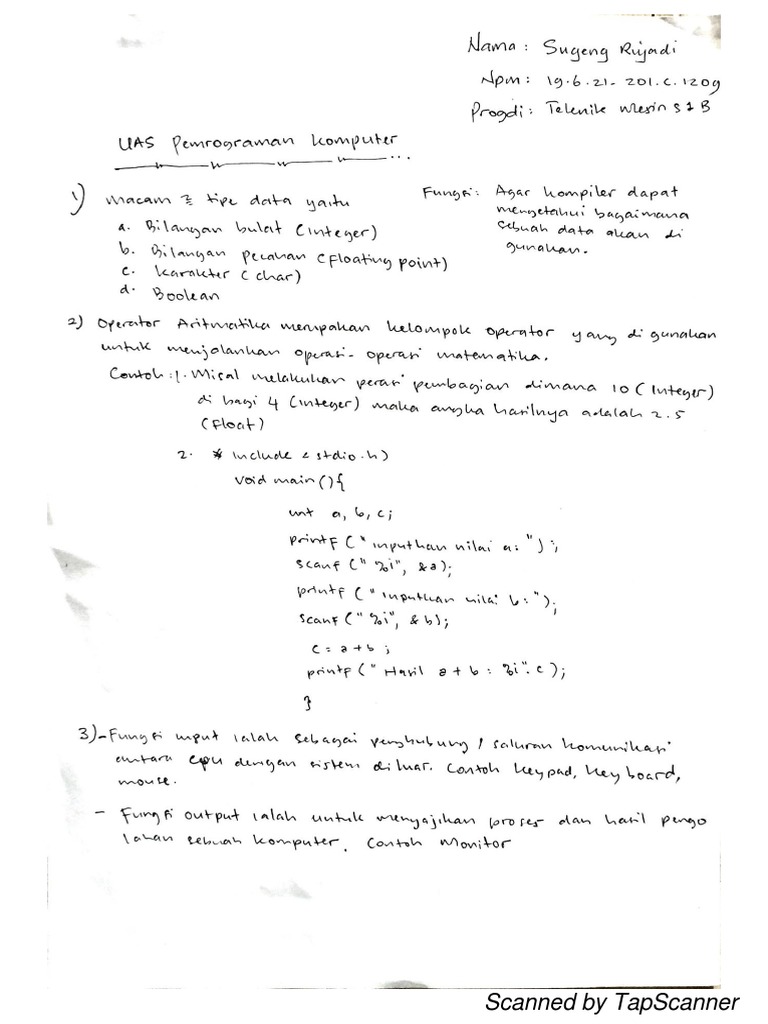 Nama : Sugeng Riyadi
Npm : 19.6.21.201.C.1209
Progdi : Teknik Mesin S1 B
UAS Pemrograman Komputer
1) Macam 2 tipe data yaitu
a. Bilangan bulat (integer)
b. Bilangan pecahan (Floating point)
c. Karakter (char)
d. Boolean
Fungsi : Agar kompiler dapat
mengetahui bagaimana
sebuah data akan di
gunakan.
2) Operator Aritmatika merupakan kelompok operator yang di gunakan
untuk menjalankan operasi-operasi matematika.
Contoh : 1. Misal melakukan perasi pembagian dimana 10 (Integer)
di bagi 4 (integer) maka angka hasilnya adalah 2.5
(Float)
2. # include < stdio.h)
void main(){
int a, b, c;
printf (" inputkan nilai a: ");
scanf (" %i", &a);
printf (" inputkan nilai b: ");
scanf (" %i", & b);
c = a + b ;
printf (" Hasil a + b : %i". c);
}
3) - Fungsi input ialah sebagai penghubung / saluran komunikasi
antara cpu dengan sistem diluar. Contoh keypad, key board,
mouse.
- Fungsi output ialah untuk menyajikan proses dan hasil pengo
lahan sebuah komputer. Contoh Monitor
Scanned by TapScanner